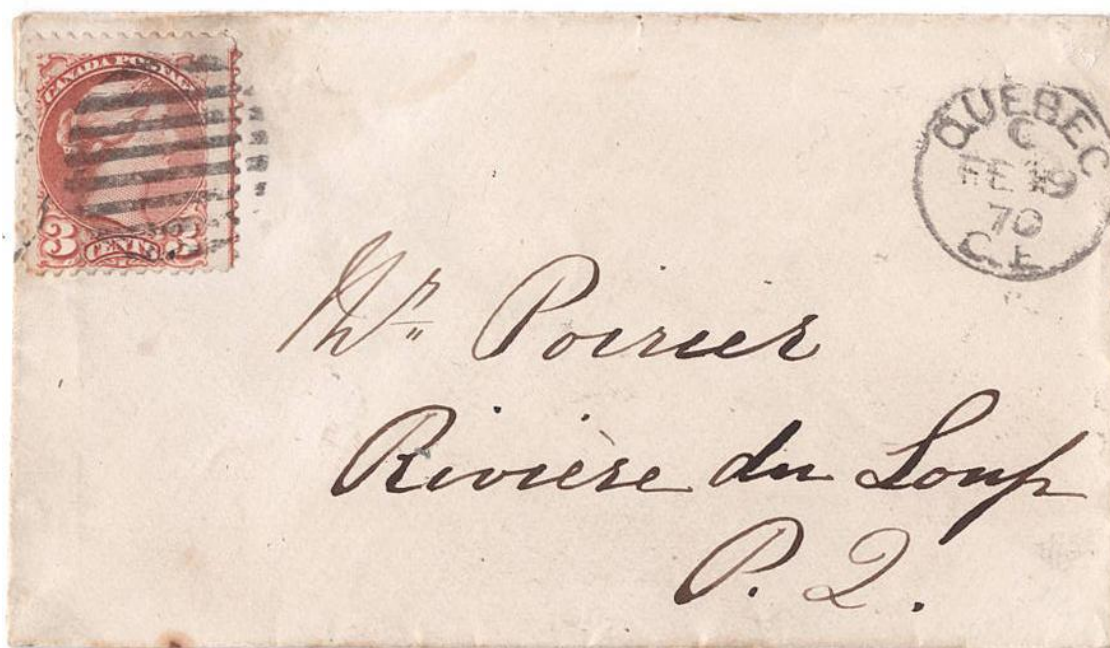 CANADA POSTAGE
3 CENTS 3
QUEBEC
C
FE 19
70
C.E
Mr. Poirier
Rivière du Loup
P. Q.